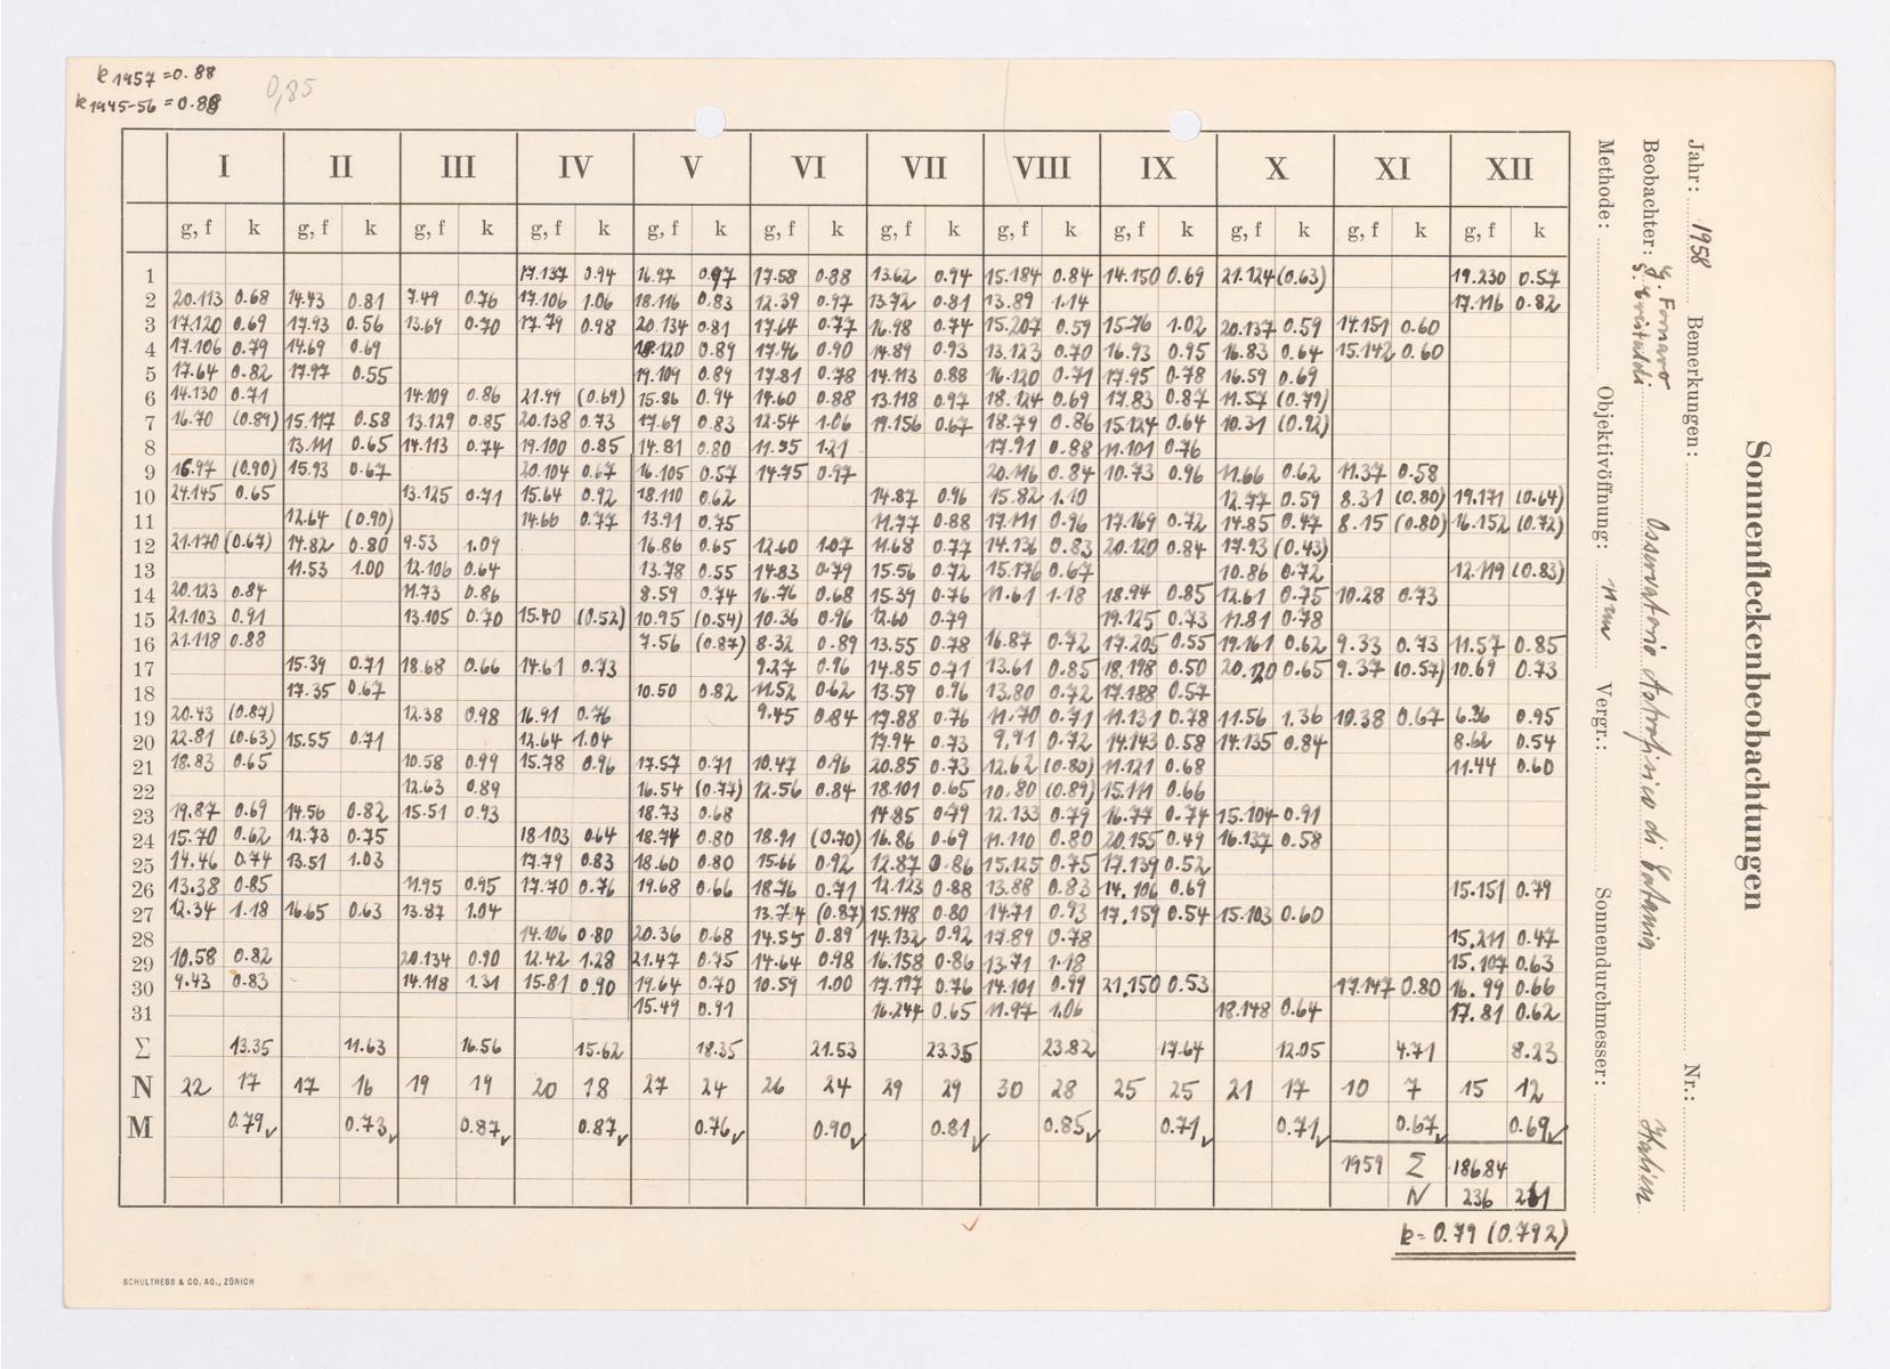 k 1957 = 0.88
k 1945-56 = 0.88
0,85
I II III IV V VI VII VIII IX X XI XII
g, f k g, f k g, f k g, f k g, f k g, f k g, f k g, f k g, f k g, f k g, f k g, f k
1 17.137 0.94 16.97 0.97 17.58 0.88 13.62 0.94 15.184 0.84 14.150 0.69 21.124 (0.63) 19.230 0.57
2 20.113 0.68 14.43 0.81 7.49 0.76 17.106 1.06 18.116 0.83 12.39 0.97 13.72 0.81 13.89 1.14 17.116 0.82
3 17.120 0.69 17.93 0.56 13.69 0.70 17.79 0.98 20.134 0.81 17.64 0.77 16.98 0.74 15.207 0.59 15.76 1.02 20.137 0.59 14.151 0.60
4 17.106 0.79 14.69 0.69 18.120 0.89 17.46 0.90 14.89 0.93 13.123 0.70 16.93 0.95 16.83 0.64 15.142 0.60
5 17.64 0.82 17.97 0.55 19.109 0.89 17.81 0.78 14.113 0.88 16.120 0.71 17.95 0.78 16.59 0.69
6 14.130 0.71 14.109 0.86 21.99 (0.69) 15.86 0.94 14.60 0.88 13.118 0.97 18.124 0.69 17.83 0.87 11.57 (0.79)
7 16.70 (0.89) 15.117 0.58 13.129 0.85 20.138 0.73 17.69 0.83 12.54 1.06 19.156 0.67 18.79 0.86 15.124 0.64 10.31 (0.92)
8 13.111 0.65 14.113 0.74 19.100 0.85 14.81 0.80 11.35 1.21 17.91 0.88 11.101 0.76
9 16.97 (0.90) 15.93 0.67 20.104 0.67 16.105 0.57 14.75 0.97 20.116 0.84 10.73 0.96 11.66 0.62 11.37 0.58
10 24.145 0.65 13.125 0.71 15.64 0.92 18.110 0.62 14.87 0.96 15.82 1.10 12.77 0.59 8.31 (0.80) 19.171 (0.64)
11 12.64 (0.90) 14.66 0.77 13.91 0.75 11.77 0.88 17.111 0.96 17.169 0.72 14.85 0.47 8.15 (0.80) 16.152 (0.72)
12 21.170 (0.67) 14.82 0.80 9.53 1.09 16.86 0.65 12.60 1.07 11.68 0.77 14.136 0.83 20.120 0.84 17.93 (0.43)
13 11.53 1.00 12.106 0.64 13.78 0.55 14.83 0.79 15.56 0.72 15.176 0.67 10.86 0.72 12.119 (0.83)
14 20.123 0.84 11.73 0.86 8.59 0.74 16.76 0.68 15.39 0.76 11.61 1.18 18.94 0.85 12.61 0.75 10.28 0.73
15 21.103 0.91 13.105 0.70 15.40 (0.52) 10.95 (0.54) 10.36 0.96 12.60 0.79 19.125 0.73 11.81 0.78
16 21.118 0.88 7.56 (0.87) 8.32 0.89 13.55 0.78 16.87 0.72 17.205 0.55 19.161 0.62 9.33 0.73 11.57 0.85
17 15.39 0.71 18.68 0.66 14.61 0.73 9.27 0.96 14.85 0.71 13.61 0.85 18.198 0.50 20.120 0.65 9.37 (0.57) 10.69 0.73
18 17.35 0.67 10.50 0.82 11.52 0.62 13.59 0.96 13.80 0.72 17.188 0.57
19 20.43 (0.87) 12.38 0.98 16.91 0.76 9.45 0.84 17.88 0.76 11.70 0.71 11.131 0.78 11.56 1.36 10.38 0.67 6.36 0.95
20 22.81 (0.63) 15.55 0.71 12.64 1.04 17.94 0.73 9.91 0.72 14.143 0.58 14.135 0.84 8.62 0.54
21 18.83 0.65 10.58 0.99 15.78 0.96 17.57 0.71 10.47 0.96 20.85 0.73 12.62 (0.80) 11.121 0.68 11.44 0.60
22 12.63 0.89 16.54 (0.77) 12.56 0.84 18.101 0.65 10.80 (0.89) 15.111 0.66
23 19.87 0.69 14.56 0.82 15.51 0.93 18.73 0.68 14.85 0.79 12.133 0.79 16.77 0.74 15.104 0.91
24 15.70 0.62 12.73 0.75 18.103 0.64 18.74 0.80 18.91 (0.70) 16.86 0.69 11.110 0.80 20.155 0.49 16.137 0.58
25 14.46 0.74 13.51 1.03 17.79 0.83 18.60 0.80 15.66 0.92 12.87 0.86 15.125 0.75 17.139 0.52
26 13.38 0.85 11.95 0.95 17.70 0.76 19.68 0.66 18.76 0.71 12.123 0.88 13.88 0.83 14.106 0.69 15.151 0.79
27 12.34 1.18 16.65 0.63 13.87 1.04 13.74 (0.87) 15.148 0.80 14.71 0.93 17.159 0.54 15.103 0.60
28 14.106 0.80 20.36 0.68 14.55 0.89 14.132 0.92 17.89 0.78 15.211 0.47
29 10.58 0.82 20.134 0.90 12.42 1.28 21.47 0.75 14.64 0.98 16.158 0.86 13.71 1.18 15.107 0.63
30 9.43 0.83 14.118 1.31 15.81 0.90 19.64 0.70 10.59 1.00 17.197 0.76 14.101 0.99 21.150 0.53 17.147 0.80 16.99 0.66
31 15.49 0.91 16.244 0.65 11.97 1.06 18.148 0.64 17.81 0.62
Σ 13.35 11.63 16.56 15.62 18.35 21.53 23.35 23.82 17.64 12.05 4.71 8.23
N 22 17 17 16 19 19 20 18 27 24 26 24 29 29 30 28 25 25 21 17 10 7 15 12
M 0.79 0.73 0.87 0.87 0.76 0.90 0.81 0.85 0.71 0.71 0.67 0.69
1959 Σ 186.84
N 236
k = 0.79 (0.792)
SCHULTHESS & CO. AG., ZÜRICH
Sonnenfleckenbeobachtungen
Jahr: 1958 Bemerkungen: Nr.:
Beobachter: G. Fornaro Osservatorio Astrofisico di Catania Italien
Methode: Objektivöffnung: mm Vergr.: Sonnendurchmesser: